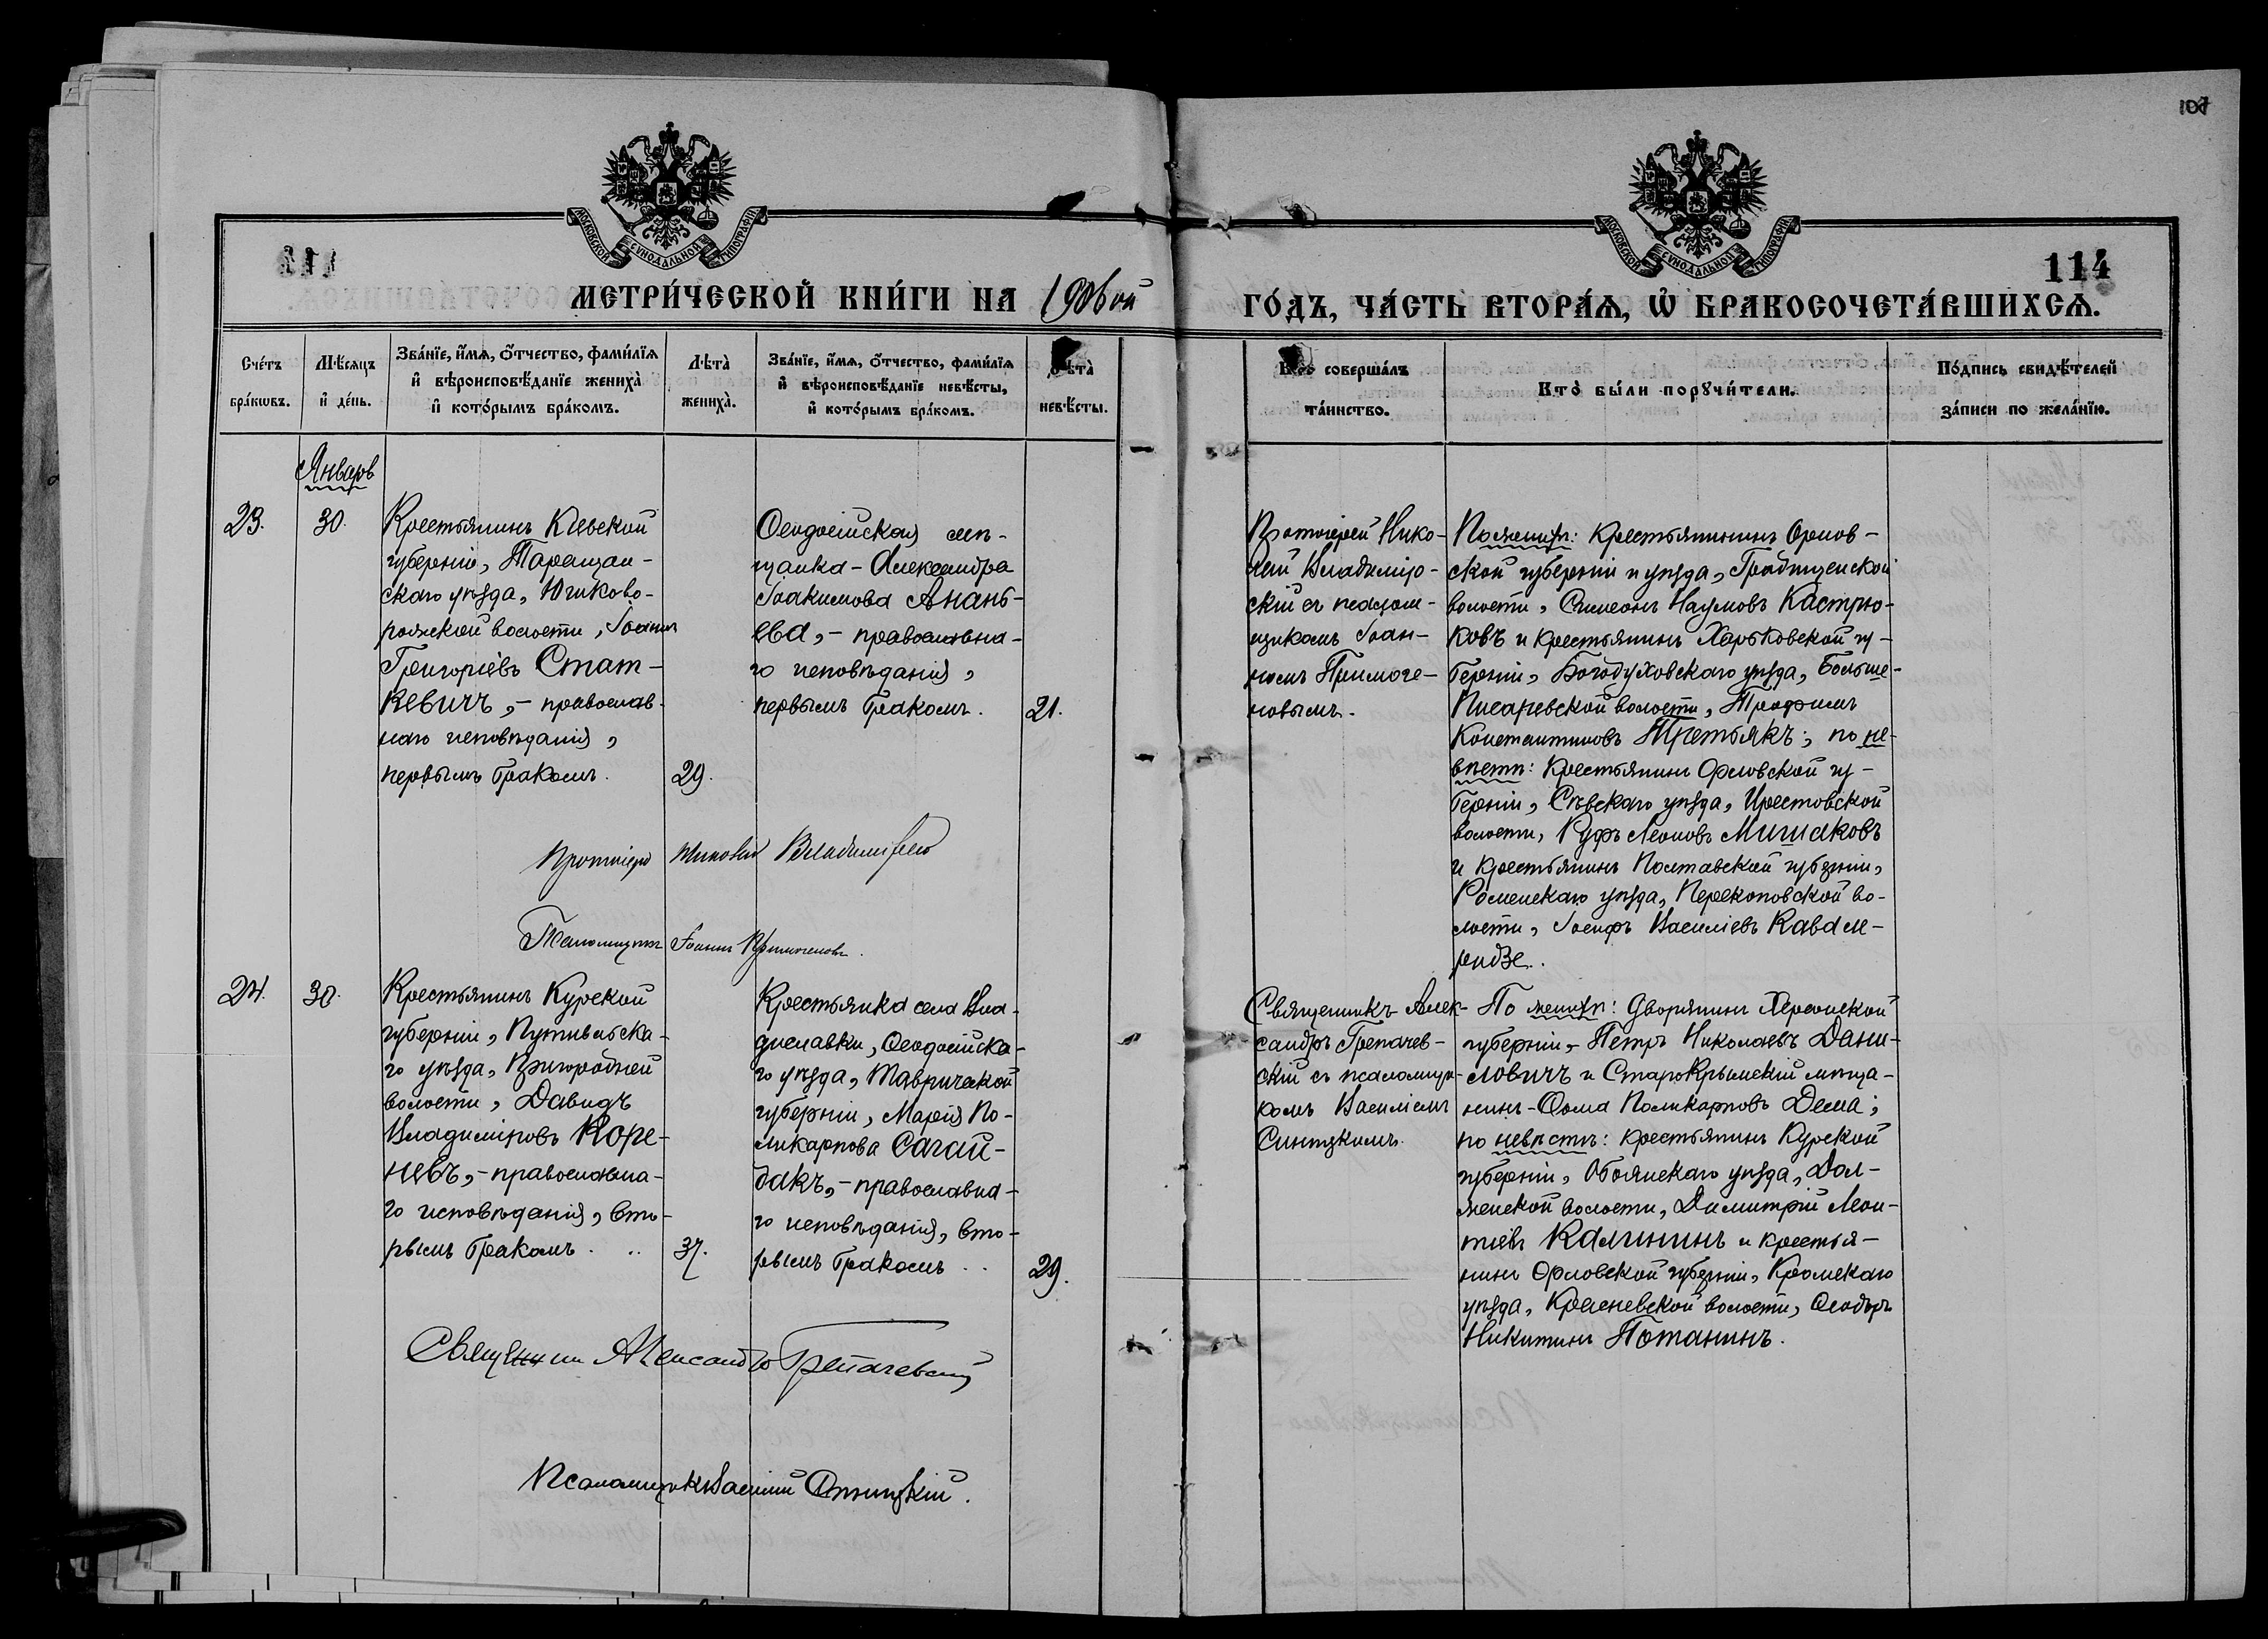 107
114
МОСКОВСКОЙ СѴНОДАЛЬНОЙ ТИПОГРАФІИ
МОСКОВСКОЙ СѴНОДАЛЬНОЙ ТИПОГРАФІИ
МЕТРИ́ЧЕСКОЙ КНИ́ГИ НА 1906 ой
ГО́ДЪ, ЧА́СТЬ ВТОРА́Ѧ, Ѽ БРАКОСОЧЕТА́ВШИХСѦ.
Сче́тъ
бра́кѡвъ.
Мѣ́сѧцъ
и҆ де́нь.
Зва́нїе, и҆́мѧ, ѻ҆́тчество, фами́лїѧ
и҆ вѣроисповѣ́данїе жениха̀
и҆ кото́рымъ бра́комъ.
Лѣта̀
жениха̀.
Зва́нїе, и҆́мѧ, ѻ҆́тчество, фами́лїѧ
и҆ вѣроисповѣ́данїе невѣ́сты,
и҆ кото́рымъ бра́комъ.
Лѣта̀
невѣ́сты.
Кто̀ соверша́лъ
та́инство.
Кто̀ бы́ли порꙋчи́тели.
По́дпись свидѣ́телей
за́писи по жела́нїю.
Январь
23.
30.
Крестьянинъ Кіевской
губерніи, Таращан-
скаго уѣзда, Юшково-
рожской волости, Іоаннъ
Григоріевъ Стат-
кевичъ, - православ-
наго исповѣданія,
первымъ бракомъ.
29.
Ѳеодосійская мѣ-
щанка - Александра
Іоакимова Анань-
ева, - православна-
го исповѣданія,
первымъ бракомъ.
21.
Протоіерей Нико-
лай Владимір-
скій съ псалом-
щикомъ Іоан-
номъ Примоге-
новымъ.
По женихѣ: Крестьянинъ Орлов-
ской губерніи и уѣзда,
волости, Симеонъ Наумовъ Кастрю-
ковъ и крестьянинъ Харьковской гу-
берніи, Богодуховскаго уѣзда, Больше-
Писаревской волости, Трофимъ
Константиновъ Третьякъ; по не-
вѣстѣ: Крестьянинъ Орловской гу-
берніи, Сѣвскаго уѣзда,
волости, Руфъ Леоновъ Мишаковъ
и крестьянинъ Полтавской губерніи,
Роменскаго уѣзда, Перекоповской во-
лости, Іосифъ Василіевъ Кавам-
ридзе.
Протоіерей Николай Владимірскій
Псаломщикъ Іоаннъ Примогеновъ.
24.
30.
Крестьянинъ Курской
губерніи, Путивльска-
го уѣзда, Пригородней
волости, Давидъ
Владиміровъ Коре-
невъ, - православна-
го исповѣданія, вто-
рымъ бракомъ.
37.
Крестьянка села Вла-
диславки, Ѳеодосійска-
го уѣзда, Таврической
губерніи, Марія По-
ликарпова Сагай-
дакъ, - православна-
го исповѣданія, вто-
рымъ бракомъ
29.
Священникъ Алек-
сандръ Трепачев-
скій съ псаломщи-
комъ Василіемъ
Синицкимъ.
По женихѣ: Дворянинъ Херсонской
губерніи, - Петръ Николаевъ Дани-
ловичъ и СтароКрымскій мѣща-
нинъ - Ѳома Поликарповъ Дема;
по невѣстѣ: крестьянинъ Курской
губерніи, Обоянскаго уѣзда, Дол-
женской волости, Димитрій Леон-
тіевъ Калининъ и крестья-
нинъ Орловской губерніи, Кромскаго
уѣзда, волости, Ѳеодоръ
Никитинъ Потанинъ.
Священникъ Александръ Трепачевскій
Псаломщикъ Василій Синицкій.